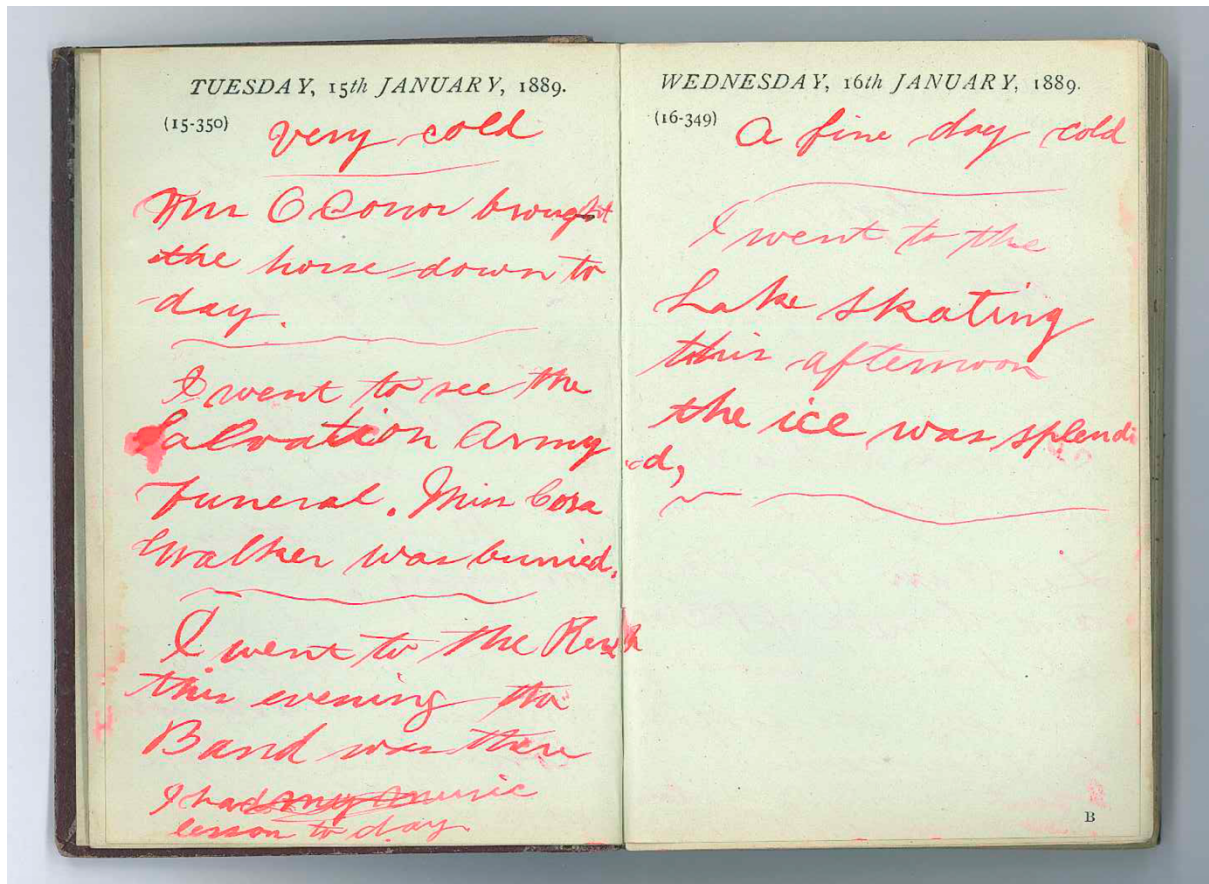 TUESDAY, 15th JANUARY, 1889.
(15-350)
very cold
O Conor brought
the horse down to
day.
I went to see the
Salvation Army
Funeral. Miss Cora
Walker was burried.
I went to the Rink
this evening the
Band was there
I had my music
lesson to day
WEDNESDAY, 16th JANUARY, 1889.
(16-349)
A fine day cold
I went to the
Lake skating
this afternoon
the ice was splendi
ed,
B